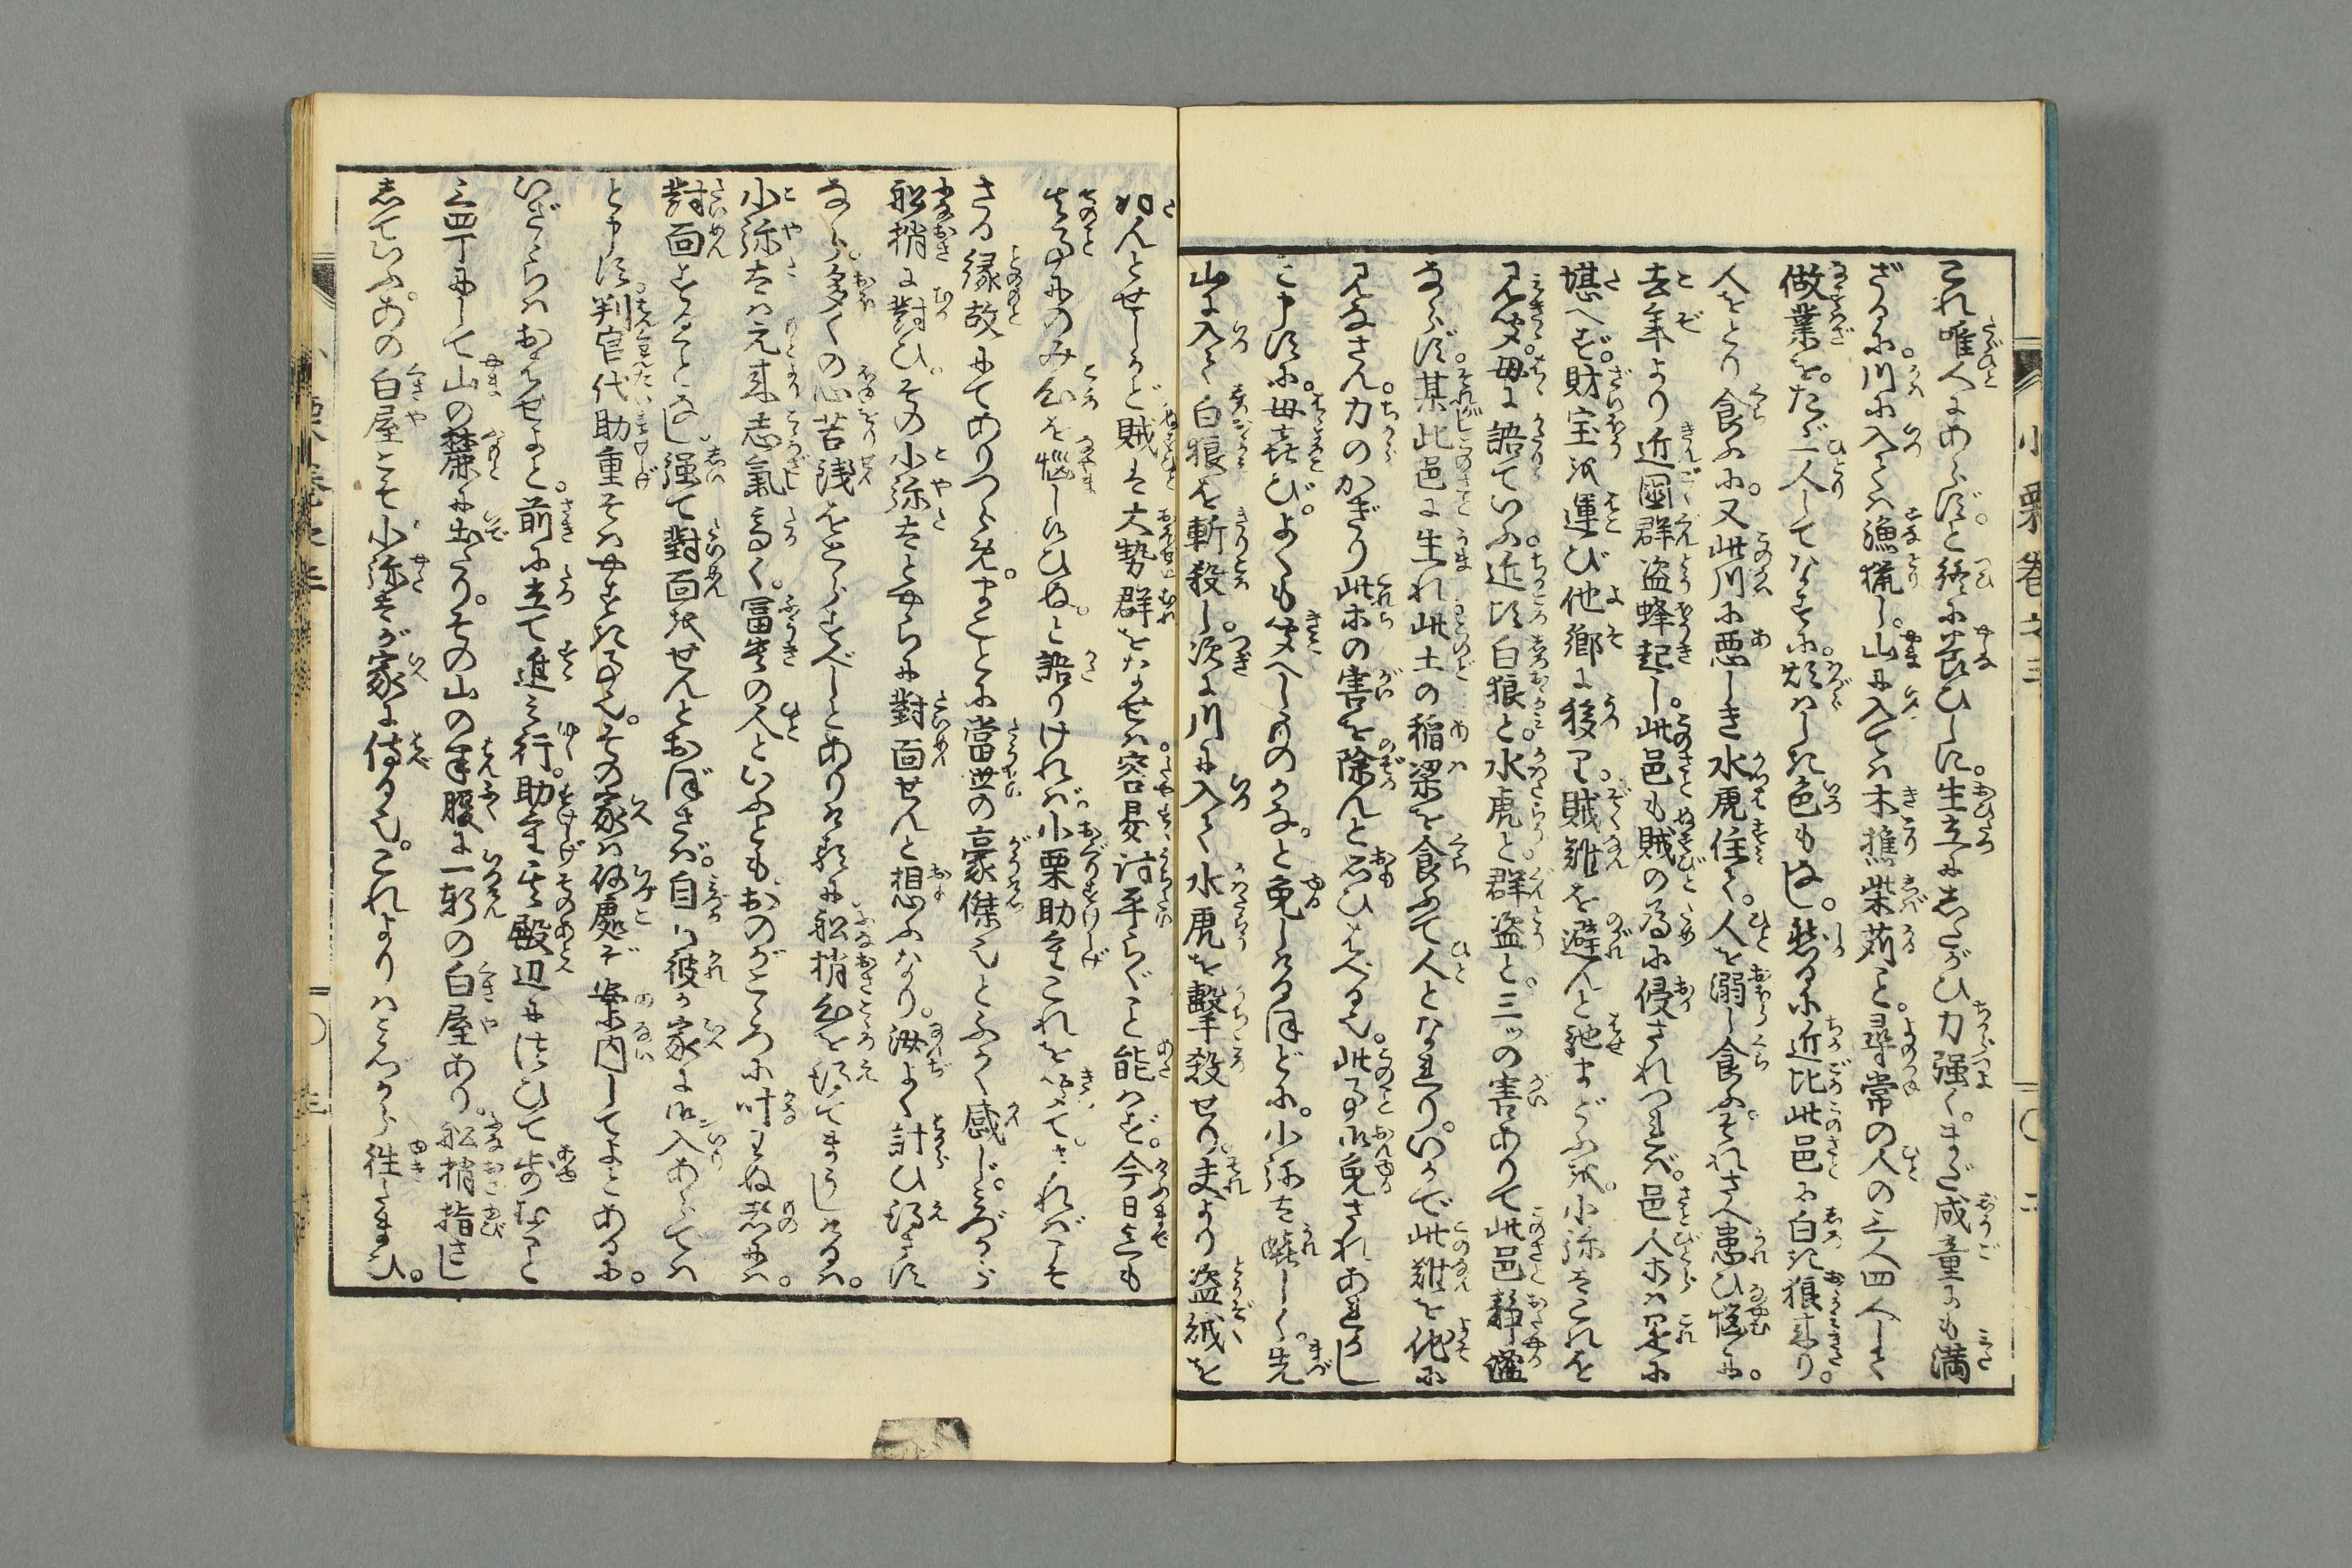 これ唯人にあらずと終に養ひしに。生立にしたがひ力強く。まだ成童にも満
ざるに川に入ては漁猟し。山に入ては木樵柴苅と。尋常の人の三人四人して
做業を。たゞ一人してなすに。煩はしき色もなし。然るに近比此邑に白き狼来り。
人をとり食ふに。又此川に悪しき水虎住て。人を溺し食ふ。それさへ患ひ悩むに。
去年より近国群盗蜂起し。此邑も賊の為に侵されつれば。邑人等は是に
堪へず。財宝を運び他郷に移りて賊難を避んと馳まどふを。小弥太これを
見聞。母に語ていふ。近き白狼と。水虎と群盗と。三ッの害ありて此邑静謐
ならず。某此邑に生れ此土の稲梁を食ふて人となれり。いかで此難を他に
見なさん。力のかぎり此等の害を除んと思ひはべる也。此事御免されあれかし
と申すに。母喜び。よくも聞へしものかな。と免しけるほどに。小弥太嬉しく。先
山に入て白狼を斬殺し。次に川に入て水虎を撃殺せり。夫より盗賊を
如んとせしかど賊は大勢群をなせば。容易討平らぐこと能はず。今日までも
其事にのみ心を悩しはひぬ。と語りければ。小栗助重これを聞て。さればこそ
さる縁故にてありつらめ。まことに当世の豪傑也とふかく感じ。みづから
船梢に対ひ。その小弥太と母らに対面せんと想ふなり。汝よく計ひ得させ
なば。多くの心苦銭をとらすべしとありければ船梢心を得てまうしけるは。
小弥太は元来志気高く。富貴の人といふともおのがこゝろに叶はぬ者には。
対面することなし。強て対面をせんとおぼさば。自ら彼が家に御入あらでは
と申に。判官代助重そはやすき事也。その家は何処ぞ案内してよとあるに。
いざゝらばおはせよと。前に立て進み行。助重其殿辺に従ひて歩むこと
三四丁にして山の麓に出たり。その山の半腹に一軒の白屋あり。船梢指さし
していふ。あの白屋こそ小弥太が家に侍る也。これよりはみづから往たまひ。
小栗巻之三